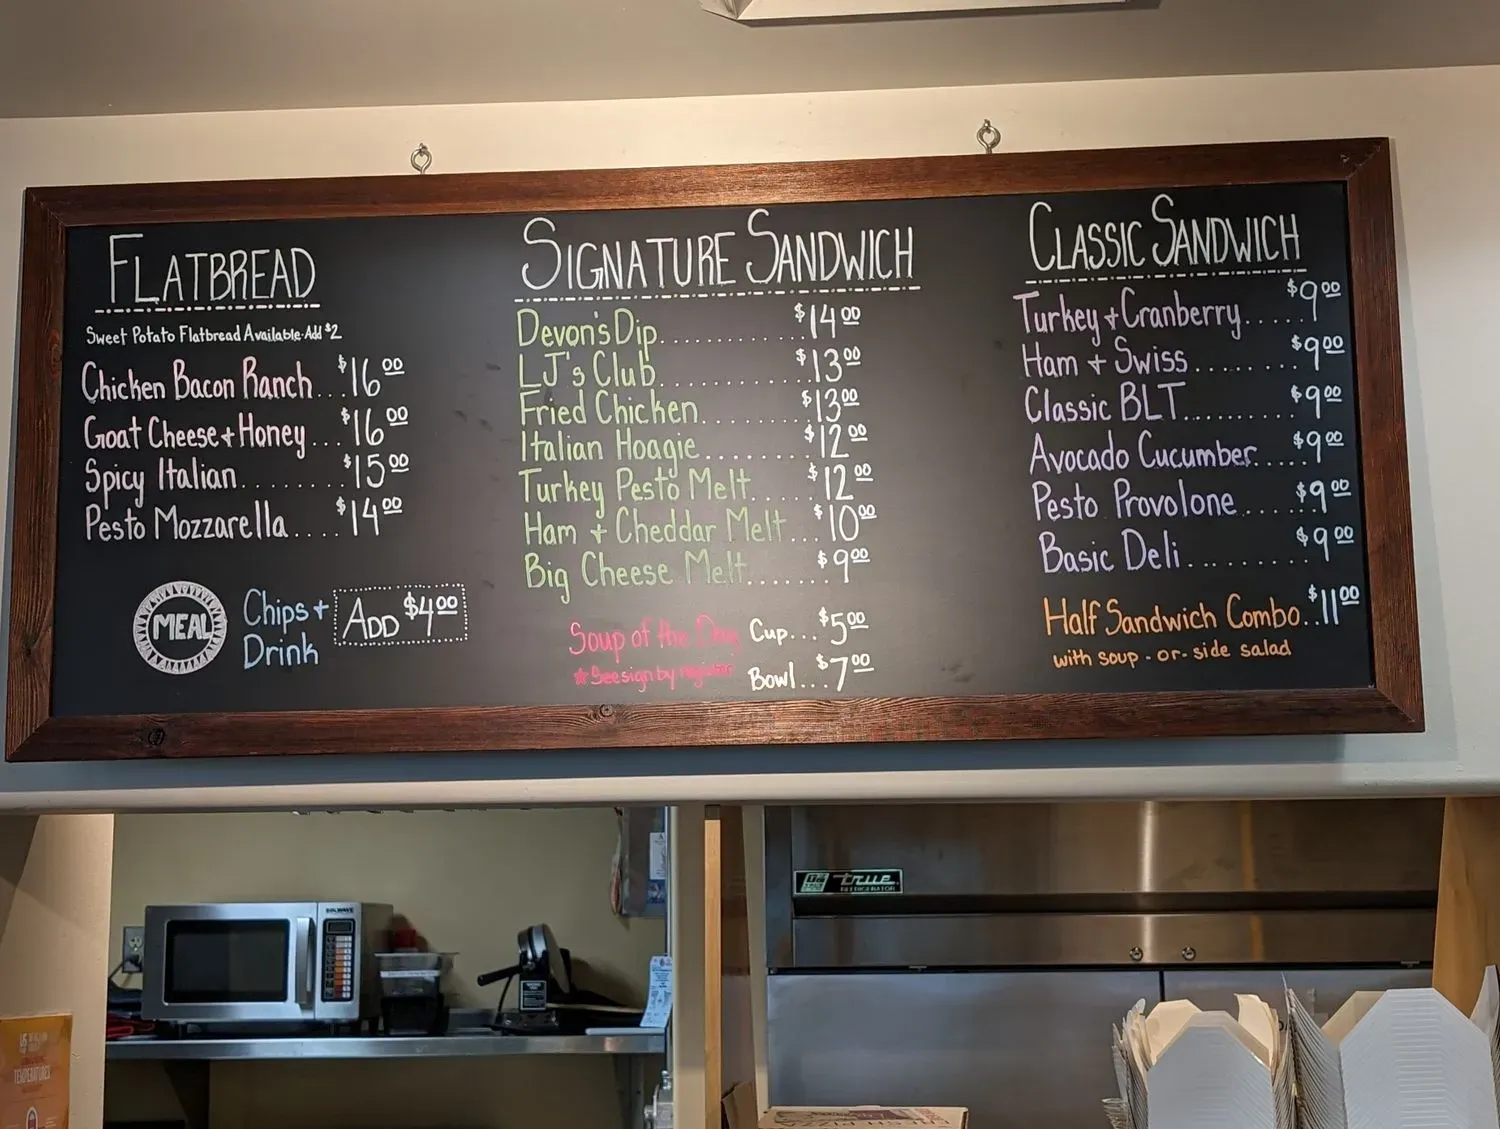 FLATBREAD
Sweet Potato Flatbread Available-Add $2
Chicken Bacon Ranch...$16.00
Goat Cheese + Honey...$16.00
Spicy Italian..........$15.00
Pesto Mozzarella....$14.00
MEAL
Chips +
Drink
ADD $4.00
SIGNATURE SANDWICH
Devon's Dip............$14.00
LJ's Club............$13.00
Fried Chicken.........$13.00
Italian Hoagie........$12.00
Turkey Pesto Melt.....$12.00
Ham + Cheddar Melt...$10.00
Big Cheese Melt.......$9.00
Soup of the Day Cup...$5.00
*See sign by register Bowl...$7.00
CLASSIC SANDWICH
Turkey + Cranberry.....$9.00
Ham + Swiss........$9.00
Classic BLT.........$9.00
Avocado Cucumber.....$9.00
Pesto Provolone......$9.00
Basic Deli..........$9.00
Half Sandwich Combo..$11.00
with soup -or- side salad
true
REFRIGERATOR
TEMPERATURES